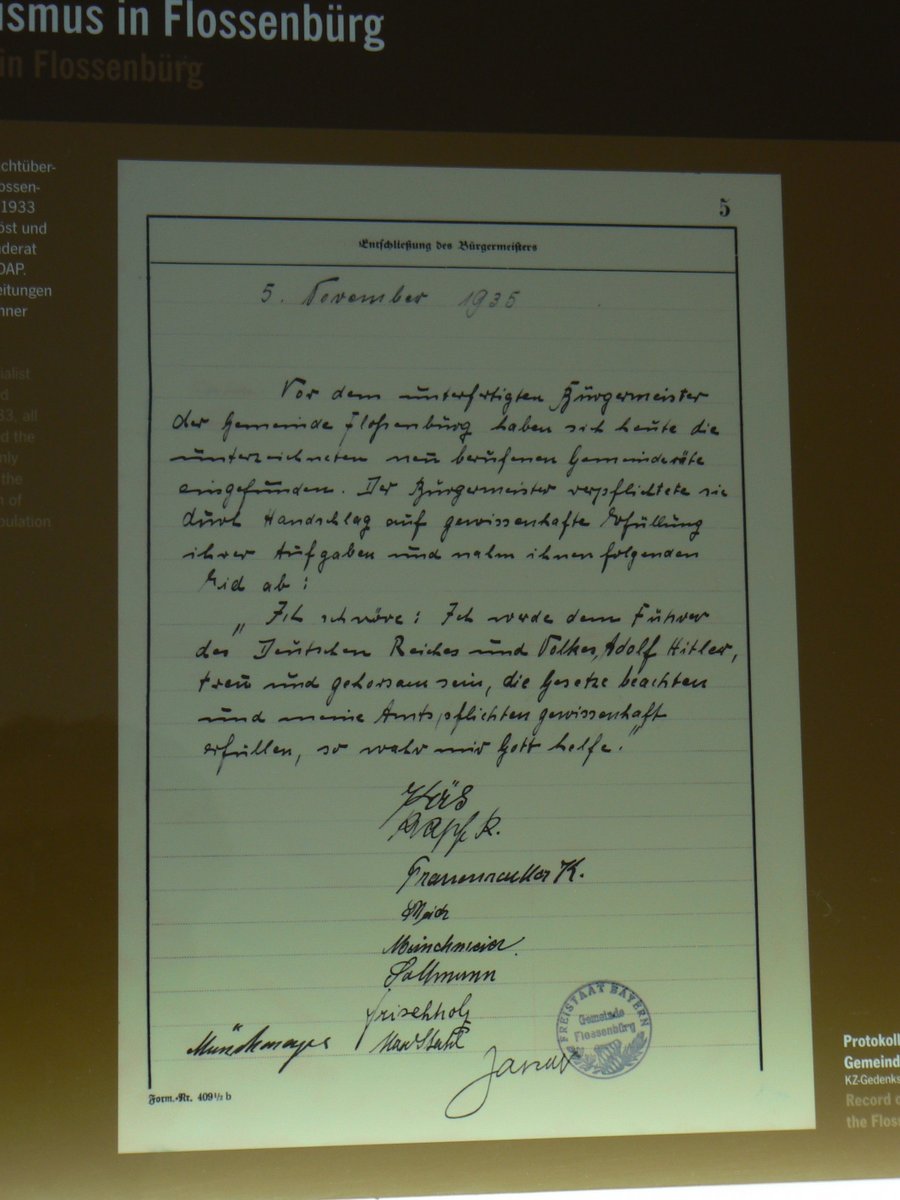 ismus in Flossenbürg
in Flossenbürg
chtüber-
ossen-
1933
öst und
nderat
DAP.
eitungen
nner
ialist
d
33, all
ed the
nly
the
n of
pulation
5
Entschließung des Bürgermeisters
5. November 1935
Vor dem unterfertigten Bürgermeister
der Gemeinde Flossenbürg haben sich heute die
unterzeichneten neu berufenen Gemeinderäte
eingefunden. Der Bürgermeister verpflichtete sie
durch Handschlag auf gewissenhafte Erfüllung
ihrer Aufgaben und nahm ihnen folgenden
Eid ab:
„Ich schwöre: Ich werde dem Führer
des Deutschen Reiches und Volkes, Adolf Hitler,
treu und gehorsam sein, die Gesetze beachten
und meine Amtspflichten gewissenhaft
erfüllen, so wahr mir Gott helfe."
Käs
K.
Münchmeier
Sollmann
Frischholz
Max Stahl
FREISTAAT BAYERN
Gemeinde
Flossenbürg
Form.-Nr. 409 1/2 b
Protokoll
Gemeind
KZ-Gedenks
Record o
the Floss